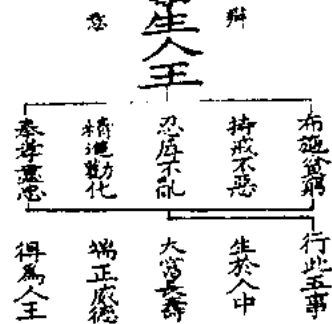 辯
意
生人王
布施貧窮
持戒不惡
忍辱不亂
精進勸化
奉孝盡忠
行此五事
生於人中
大富長壽
端正威德
得為人王